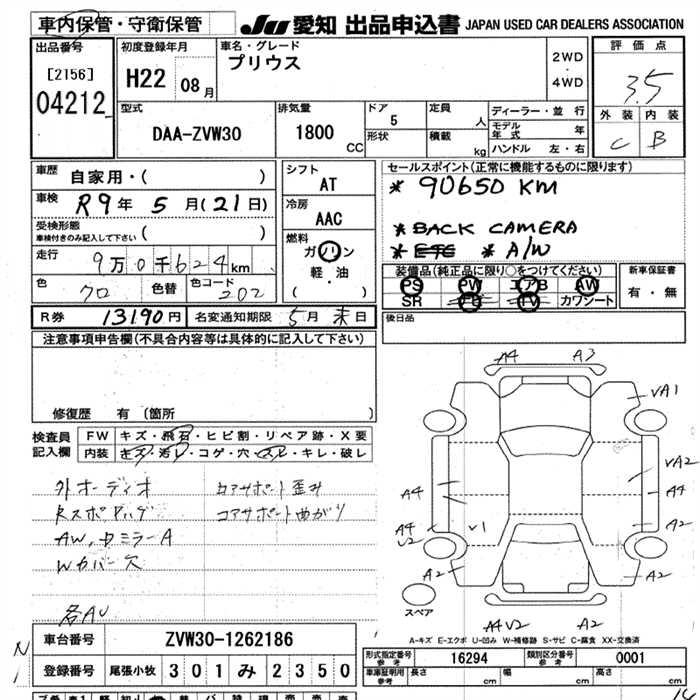 車内保管・守衛保管
JU 愛知 出品申込書 JAPAN USED CAR DEALERS ASSOCIATION
出品番号
[2156]
04212
初度登録年月
H22 08月
車名・グレード
プリウス
2WD
・
4WD
評価点
3.5
外装 内装
C B
型式
DAA-ZVW30
排気量
1800 CC
ドア
5
形状
定員
人
積載
kg
ディーラー・並行
モデル年式 年
ハンドル 左・右
車歴
自家用・( )
車検
R9年 5月(21日)
受検形態
車検付きのみ記入して下さい ( )
走行
9万0千624km
色
クロ
色替
色コード
202
シフト
AT
冷房
AAC
燃料
ガソリン
軽・油
( )
セールスポイント(正常に機能するものに限ります)
* 90650 KM
* BACK CAMERA
* ETC * A/W
装備品(純正品に限り○をつけてください)
PS PW エアB AW
SR TV カワシート
新車保証書
有・無
R券 13190円
名変通知期限 5月末日
後日品
注意事項申告欄(不具合内容等は具体的に記入して下さい)
修復歴 有(箇所 )
検査員記入欄
FW キズ・飛石・ヒビ割・リペア跡・X要
内装 キズ・汚レ・コゲ・穴・スレ・キレ・破レ
外オーディオ
AW,ミラーA
Wカバー欠
各AU
コアサポート歪み
コアサポート曲がり
A4 A3
VA1
VA2
A4 A4
A4 V2
V1
A3
A2 A2
スペア
A4V2 A2
A-キズ E-エクボ U-凹み W-補修跡 S-サビ C-腐食 XX-交換済
車台番号 ZVW30-1262186
登録番号 尾張小牧 301み2350
型式指定番号 参考 16294
類別区分番号 参考 0001
車庫証明用 参考 長さ cm 幅 cm 高さ cm